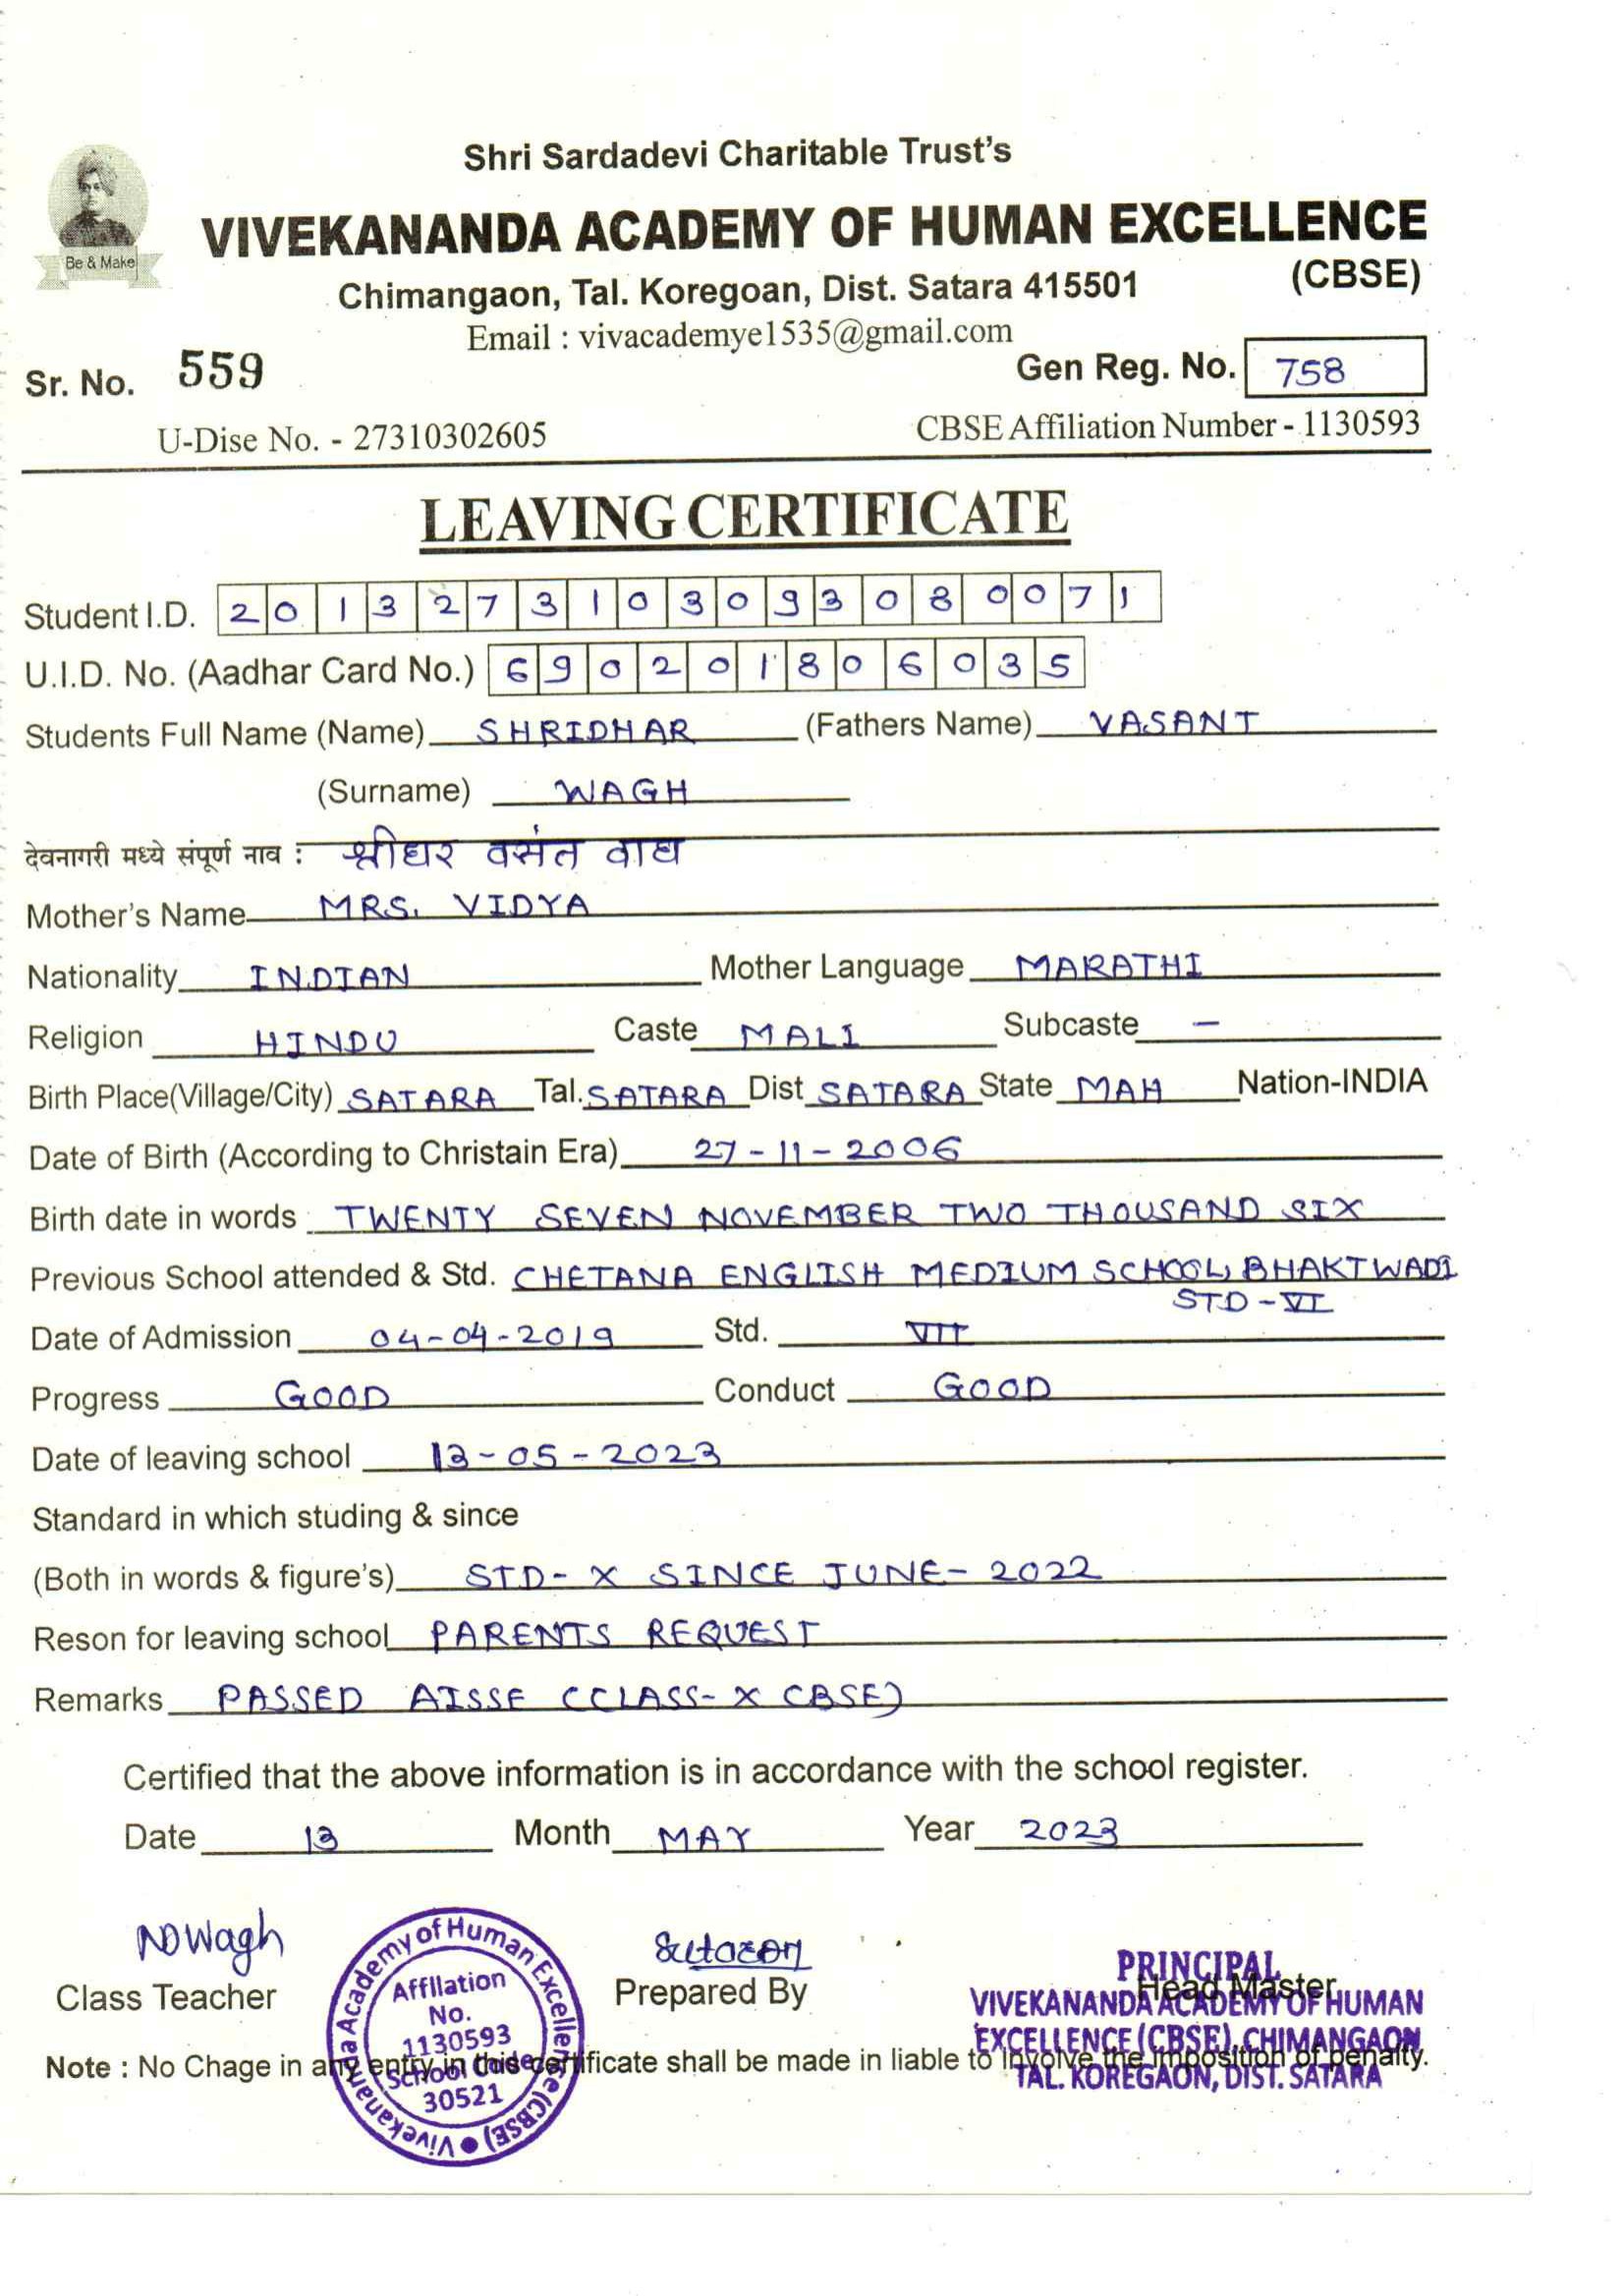 Shri Sardadevi Charitable Trust's
Be & Make
VIVEKANANDA ACADEMY OF HUMAN EXCELLENCE
(CBSE)
Chimangaon, Tal. Koregoan, Dist. Satara 415501
Email : vivacademye1535@gmail.com
Sr. No. 559 Gen Reg. No. 758
U-Dise No. - 27310302605 CBSE Affiliation Number - 1130593
LEAVING CERTIFICATE
Student I.D. 2013273103093080071
U.I.D. No. (Aadhar Card No.) 690201806035
Students Full Name (Name) SHRIDHAR (Fathers Name) VASANT
(Surname) WAGH
देवनागरी मध्ये संपूर्ण नाव : श्रीधर वसंत वाघ
Mother's Name MRS. VIDYA
Nationality INDIAN Mother Language MARATHI
Religion HINDU Caste MALI Subcaste —
Birth Place(Village/City) SATARA Tal. SATARA Dist SATARA State MAH Nation-INDIA
Date of Birth (According to Christain Era) 27-11-2006
Birth date in words TWENTY SEVEN NOVEMBER TWO THOUSAND SIX
Previous School attended & Std. CHETANA ENGLISH MEDIUM SCHOOL, BHAKTWADI
STD-VI
Date of Admission 04-04-2019 Std. VII
Progress GOOD Conduct GOOD
Date of leaving school 13-05-2023
Standard in which studing & since
(Both in words & figure's) STD- X SINCE JUNE- 2022
Reson for leaving school PARENTS REQUEST
Remarks PASSED AISSE (CLASS- X CBSE)
Certified that the above information is in accordance with the school register.
Date 13 Month MAY Year 2023
NDWagh
Class Teacher Prepared By Head Master
PRINCIPAL
VIVEKANANDA ACADEMY OF HUMAN
EXCELLENCE (CBSE), CHIMANGAON
TAL. KOREGAON, DIST. SATARA
Vivekananda Academy of Human Excellence (CBSE)
Affilation
No.
1130593
School Code
30521
Note : No Chage in any entry in this certificate shall be made in liable to involve the imposition of penalty.